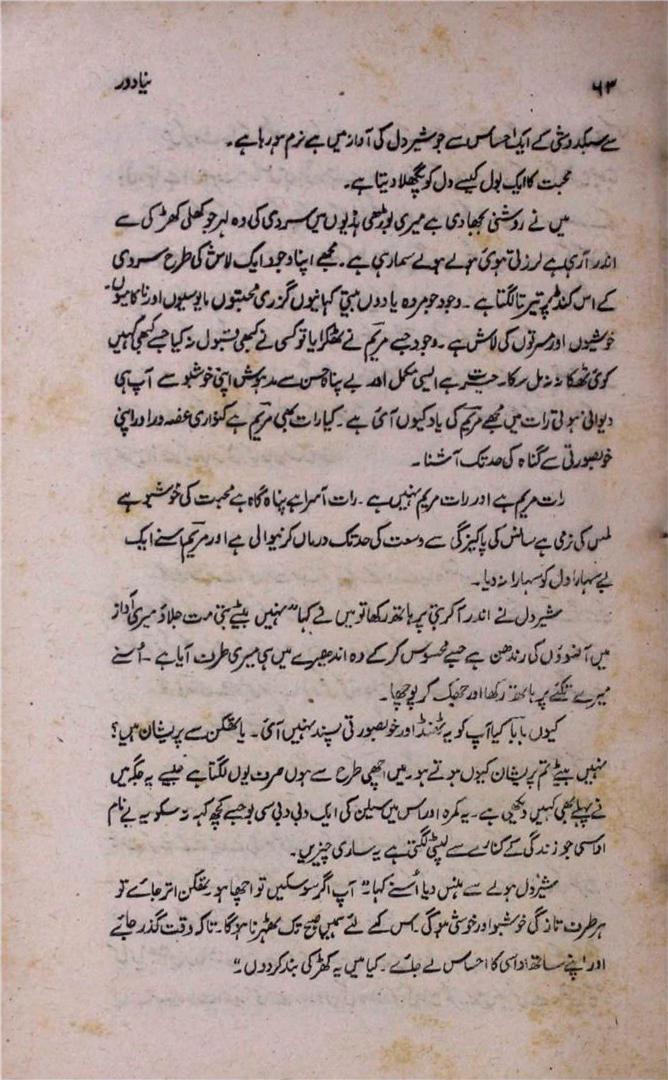 ۶۳ نیا دور
سے سبکدوشی کے ایک احساس سے جو شیر دل کی آواز میں ہے نرم ہو رہا ہے۔
محبت کا ایک بول کیسے دل کو پگھلا دیتا ہے۔
میں نے روشنی بجھا دی ہے میری بوڑھی ہڈیوں میں سردی کی وہ لہر جو کھلی کھڑکی سے
اندر آ رہی ہے لرزتی ہوئی ہولے ہولے سما رہی ہے۔ مجھے اپنا وجود ایک لاش کی طرح سردی
کے اس کنڈ پر تیرتا لگتا ہے۔ وجود جو مردہ یادوں بیتی کہانیوں گزری محبتوں مایوسیوں اور ناکامیوں۔
خوشیوں اور مسرتوں کی لاش ہے۔ وجود جسے مریم نے ٹھکرایا تو کسی نے کبھی قبول نہ کیا جسے کبھی کہیں
کوئی ٹھکانہ نہ مل سکا۔ حیرت ہے ایسی مکمل اور بے پناہ حسن سے مدہوش اپنی خوشبو سے آپ ہی
دیوانی ہوتی رات میں مجھے مریم کی یاد کیوں آئی ہے۔ کیا رات بھی مریم ہے کنواری غصہ ور اور اپنی
خوبصورتی سے گناہ کی حد تک آشنا۔
رات مریم ہے اور رات مریم نہیں ہے۔ رات آسرا ہے پناہ گاہ ہے محبت کی خوشبو ہے
لمس کی نرمی ہے سانس کی پاکیزگی سے وسعت کی حد تک درماں کرنیوالی ہے اور مریم اسنے ایک
بے سہارا دل کو سہارا نہ دیا۔
شیر دل نے اندر آ کر بتی پر ہاتھ رکھا تو میں نے کہا "نہیں بیٹے بتی مت جلاؤ میری آواز
میں آنسوؤں کی رندھن ہے جسے محسوس کر کے وہ اندھیرے میں ہی میری طرف آیا ہے۔ اُسنے
میرے تکئے پر ہاتھ رکھا اور جھک کر پوچھا۔
کیوں بابا کیا آپ کو یہ ٹھنڈ اور خوبصورتی پسند نہیں آئی۔ یا تھکن سے پریشان ہیں؟
نہیں بیٹے تم پریشان کیوں ہوتے ہو۔ میں اچھی طرح سے ہوں صرف یوں لگتا ہے جیسے یہ جگہ میں
نے پہلے بھی کہیں دیکھی ہے۔ یہ کمرہ اور اس میں سیلن کی ایک دبی دبی سی بو جسے کچھ کہہ نہ سکو یہ بے نام
اداسی جو زندگی کے کنارے سے لپٹی لگتی ہے یہ ساری چیزیں۔
شیر دل ہولے سے ہنس دیا اُسنے کہا" آپ اگر سو سکیں تو اچھا ہو۔ تھکن اتر جائے تو
ہر طرف تازگی خوشبو اور خوشی ہوگی۔ بس کے لئے ہمیں صبح تک ٹھہرنا ہو گا۔ تاکہ وقت گذر جائے
اور اپنے ساتھ اداسی کا احساس لے جائے۔ کیا میں یہ کھڑکی بند کر دوں۔"